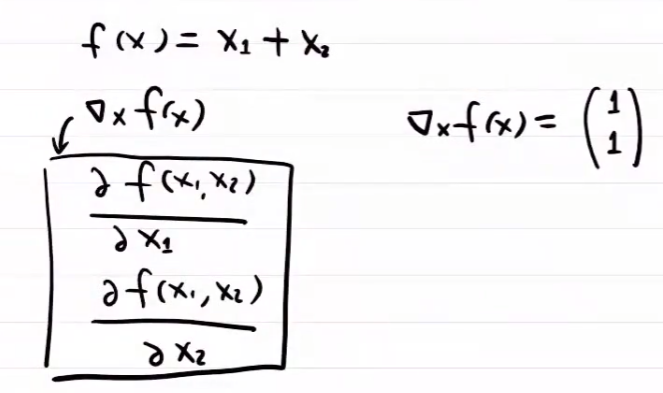 f(x) = x₁ + x₂
∇ₓ f(x)
∂ f(x₁, x₂)
∂ x₁
∂ f(x₁, x₂)
∂ x₂
∇ₓ f(x) = (1
1)